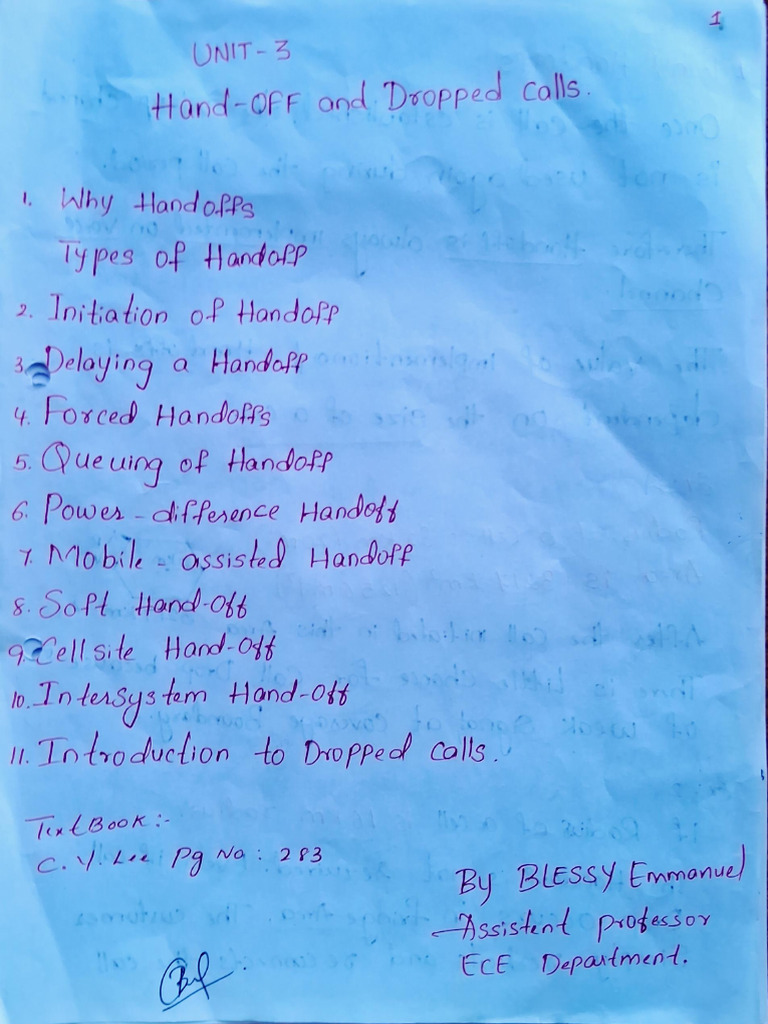 1
UNIT-3
Hand-OFF and Dropped calls.
1. Why Handoffs
Types of Handoff
2. Initiation of Handoff
3. Delaying a Handoff
4. Forced Handoffs
5. Queuing of Handoff
6. Power-difference Handoff
7. Mobile-assisted Handoff
8. Soft Hand-Off
9. Cellsite Hand-Off
10. Intersystem Hand-Off
11. Introduction to Dropped calls.
Text Book:-
C. Y. Lee Pg No: 283
By BLESSY Emmanuel
Assistent professor
ECE Department.